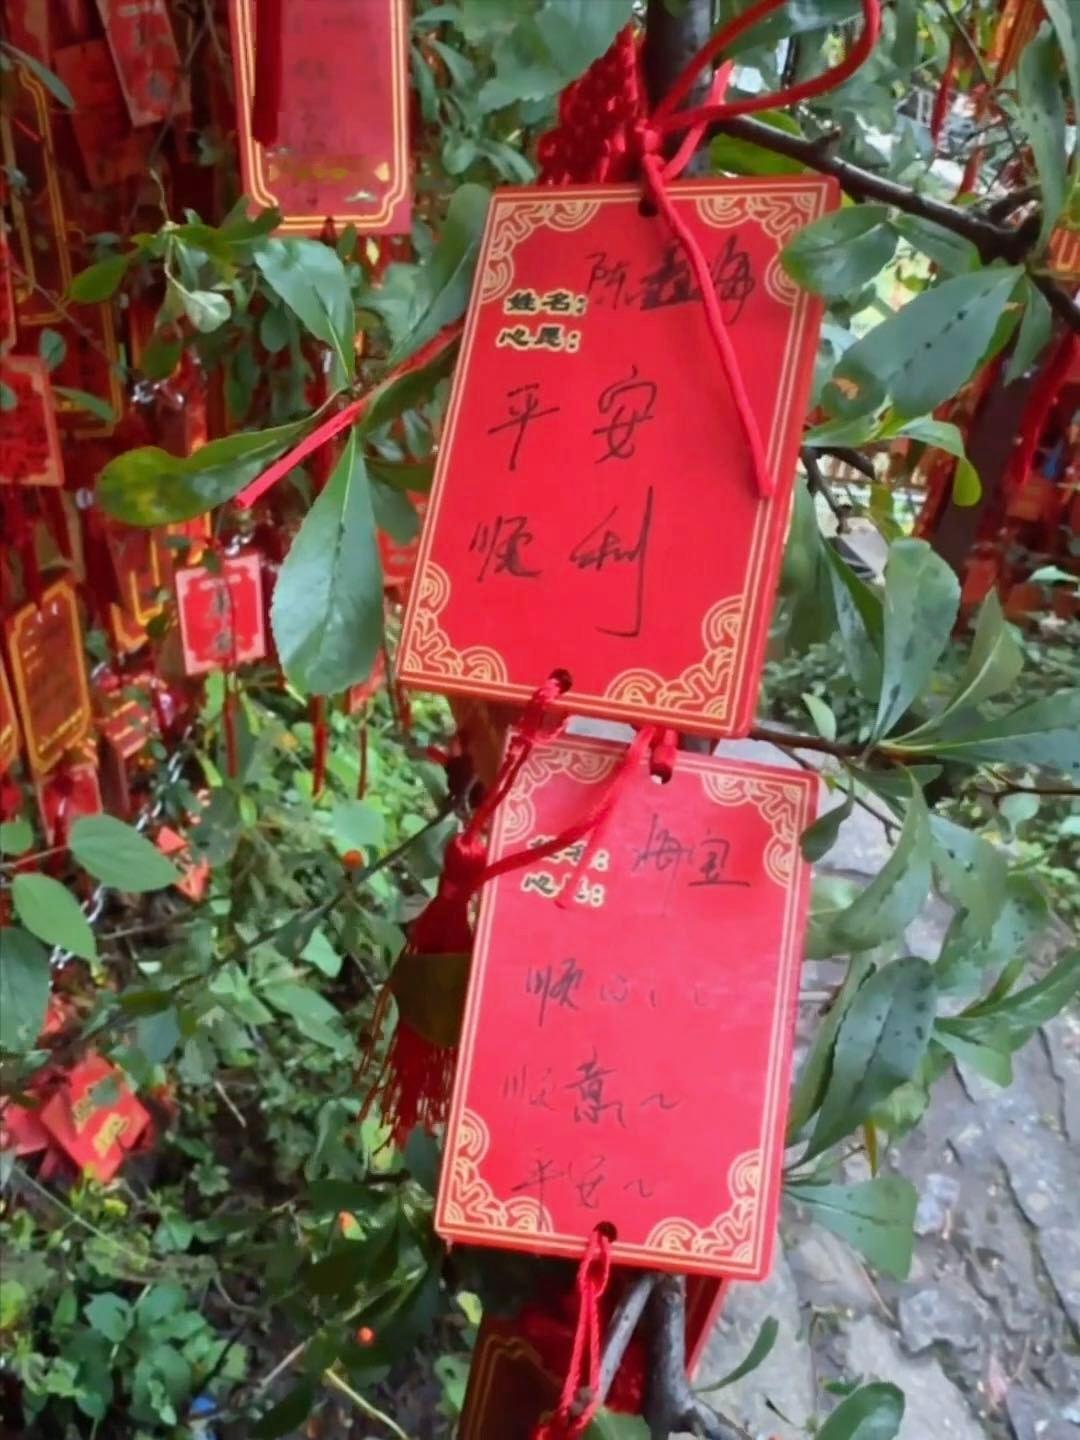 姓名：陈鑫海
心愿：
平安
顺利
姓名：海宝
心愿：
顺心~~
顺意~~
平安~~